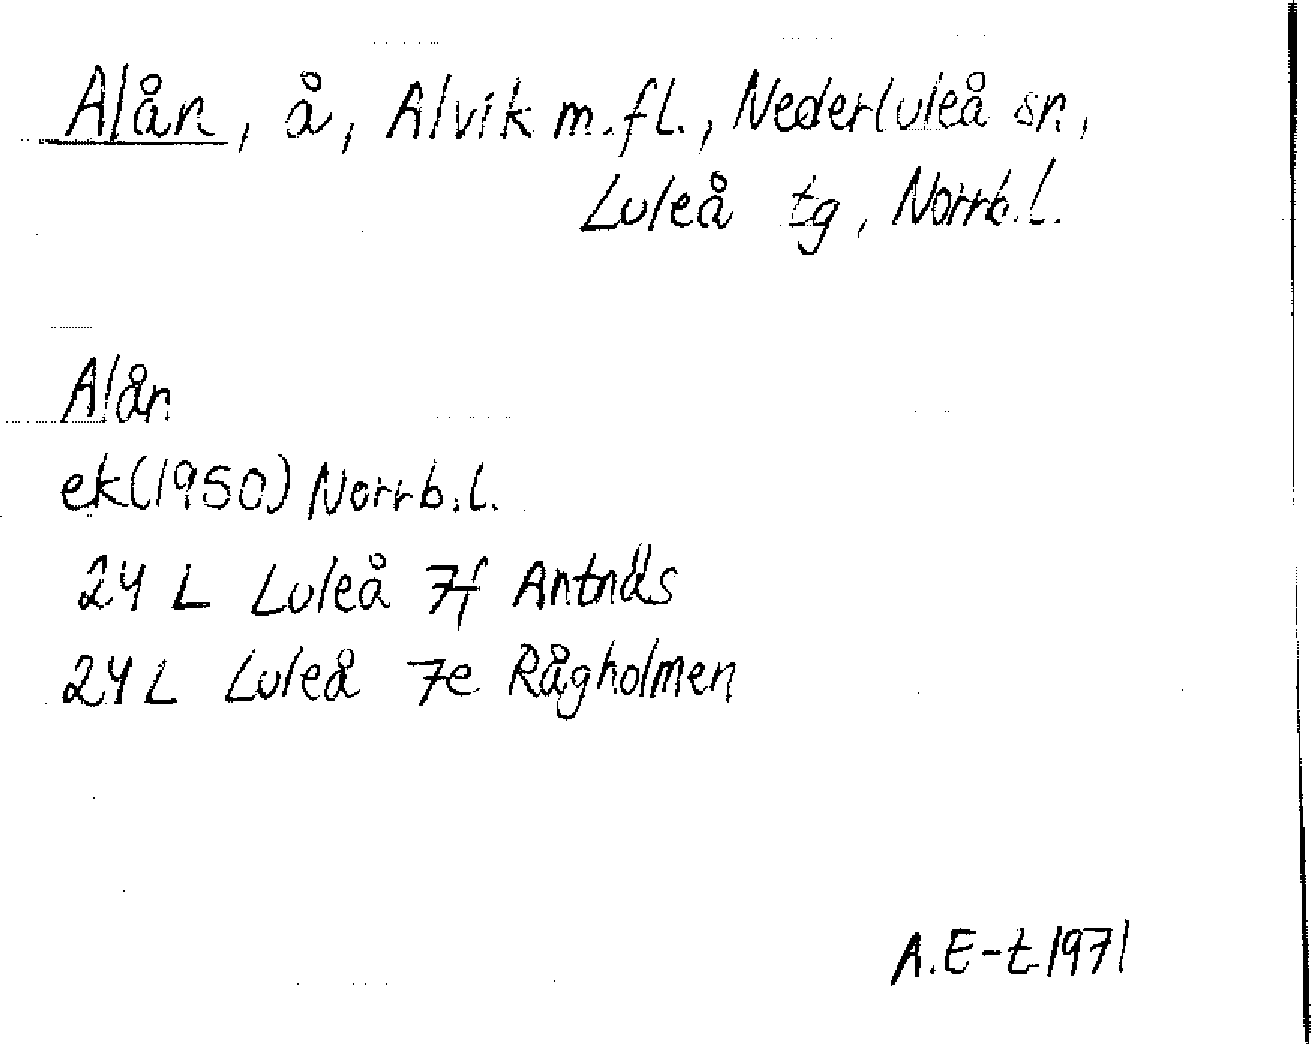 Alån, å, Alvik m.fl., Nederluleå sn,
Luleå tg, Norrb.l.
Alån
ek(1950) Norrb.l.
24 L Luleå 7f Antnäs
24 L Luleå 7e Rågholmen
A.E-t 1971